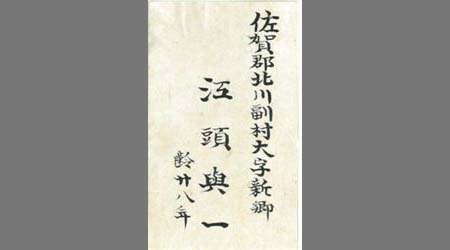 佐賀郡北川副村大字新郷
江頭與一
齢廿八年